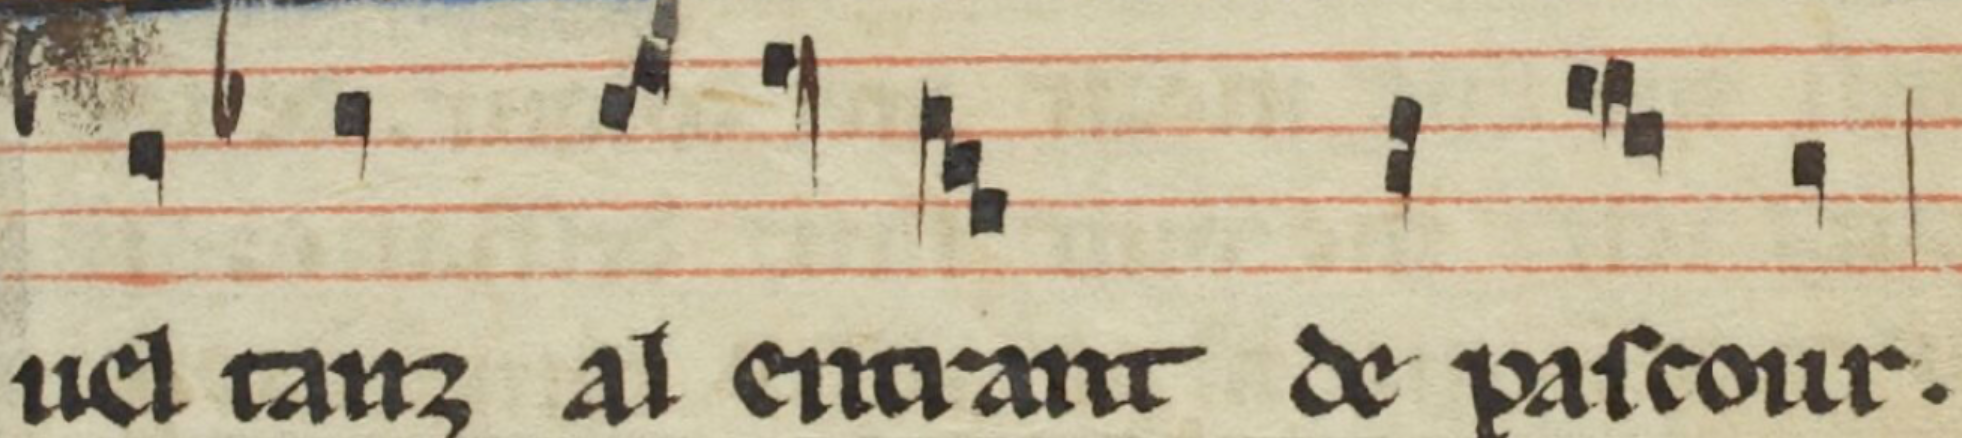 uel tanz al entrant de paſcour.